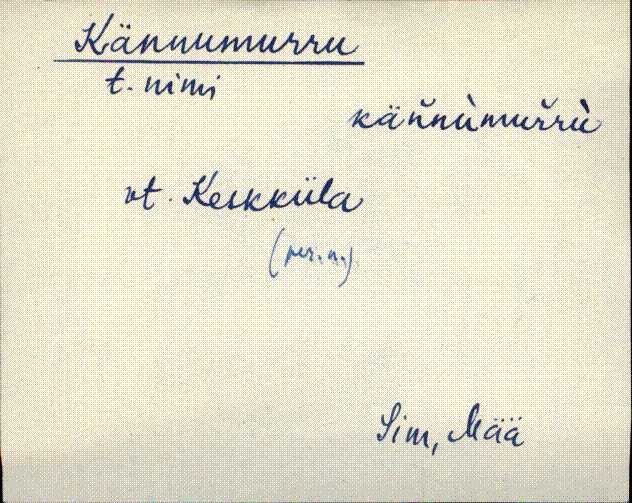 Kännumurru
t. nimi
kän̆nùmur̆rù
vt. Keskküla
(per.n.)
Sim, Mää